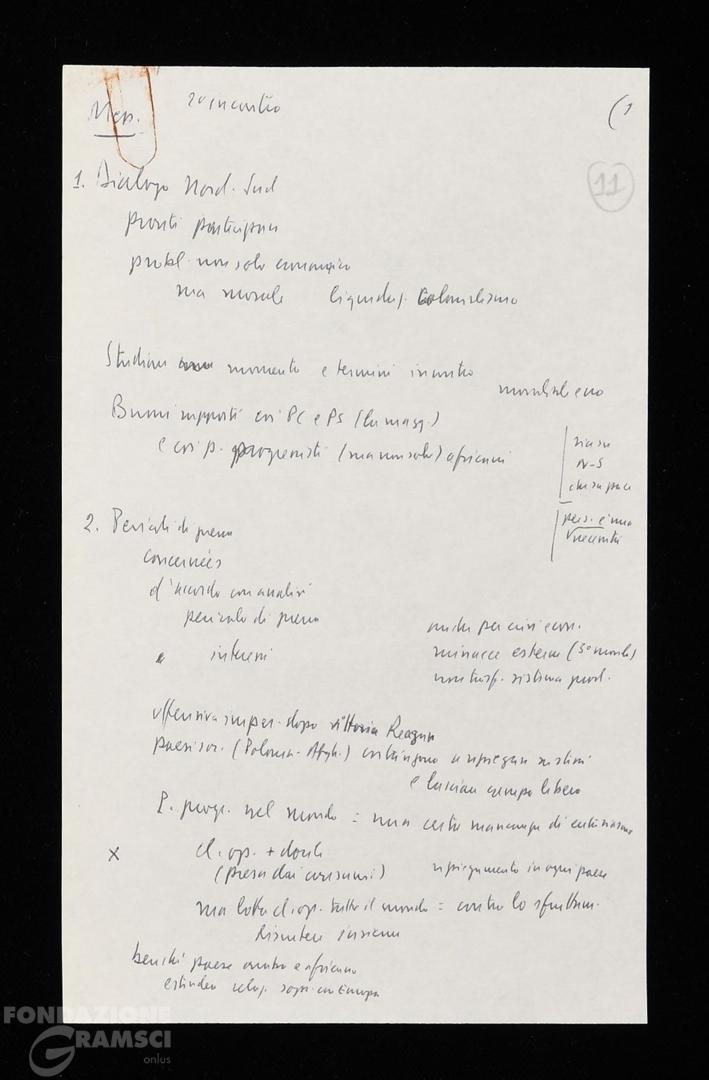 Men. 2o incontro (1
11
1. Dialogo Nord-Sud
pronti partecipare
probl. non solo economico
ma morale liquidaz. colonialismo
Studiare momento e termini incontro
Buoni rapporti coi PC e PS (
e coi p. progressisti (ma non solo) africani
N-S
2. Pericoli di guerra
concernées
d'accordo con analisi
pericolo di guerra
interni
anche per crisi econ.
minacce esterne (3o mondo)
sistema prod.
offensiva imper. dopo vittoria Reagan
paesi soc. (Polonia - Afgh.) costringono a ripiegare su sé stessi
e lasciare campo libero
P. progr. nel mondo = una certa mancanza di entusiasmo
x cl. op. + debole
(presa dai consumi) ripiegamento in ogni paese
ma lotta cl. op. tutto il mondo = contro lo sfruttam.
Discutere insieme
benché paese arabo e africano
estendere relaz. sopr. con Europa
FONDAZIONE
GRAMSCI
onlus